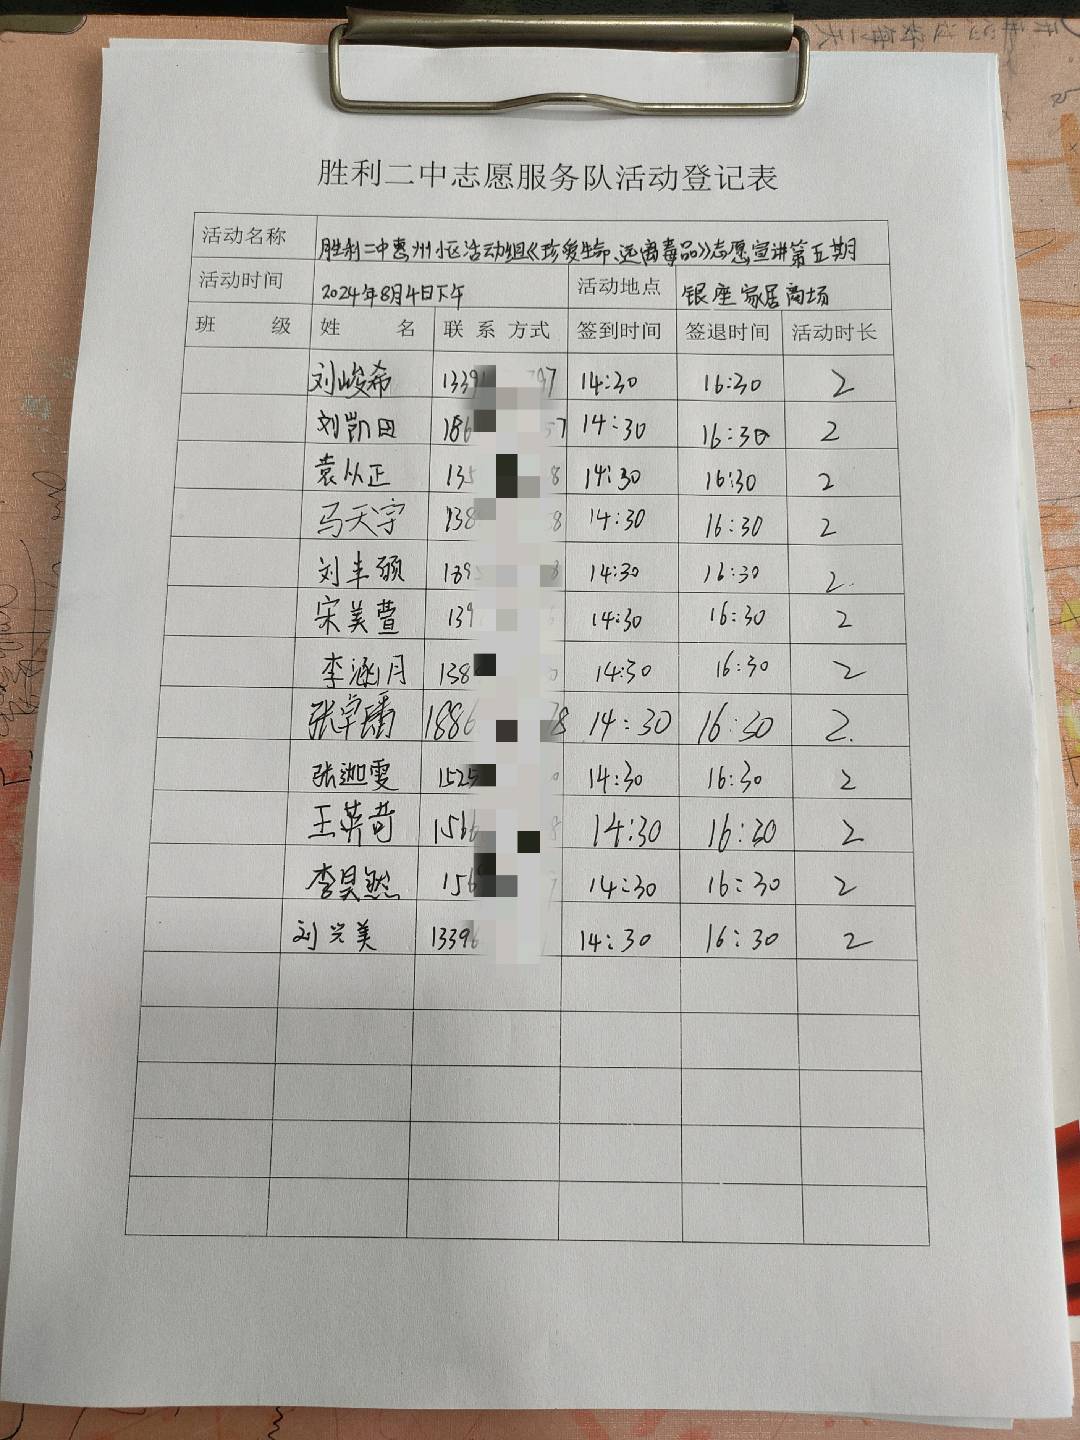 胜利二中志愿服务队活动登记表
活动名称 胜利二中惠州小区活动组《珍爱生命、远离毒品》志愿宣讲第五期
活动时间 2024年8月4日下午 活动地点 银座家居商场
班 级 姓 名 联 系 方式 签到时间 签退时间 活动时长
刘峻希 1339 97 14:30 16:30 2
刘凯田 186 57 14:30 16:30 2
袁从正 135 8 14:30 16:30 2
马天宇 138 8 14:30 16:30 2
刘丰硕 189 8 14:30 16:30 2.
宋美萱 139 14:30 16:30 2
李涵月 138 14:30 16:30 2
张卓璠 1886 78 14:30 16:30 2.
张迦雯 1525 14:30 16:30 2
王英苛 156 8 14:30 16:30 2
李昊然 156 14:30 16:30 2
刘兴美 13396 14:30 16:30 2